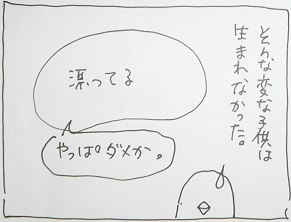 そんな変な子供は
生まれなかった。
漂ってる
やっぱダメか。